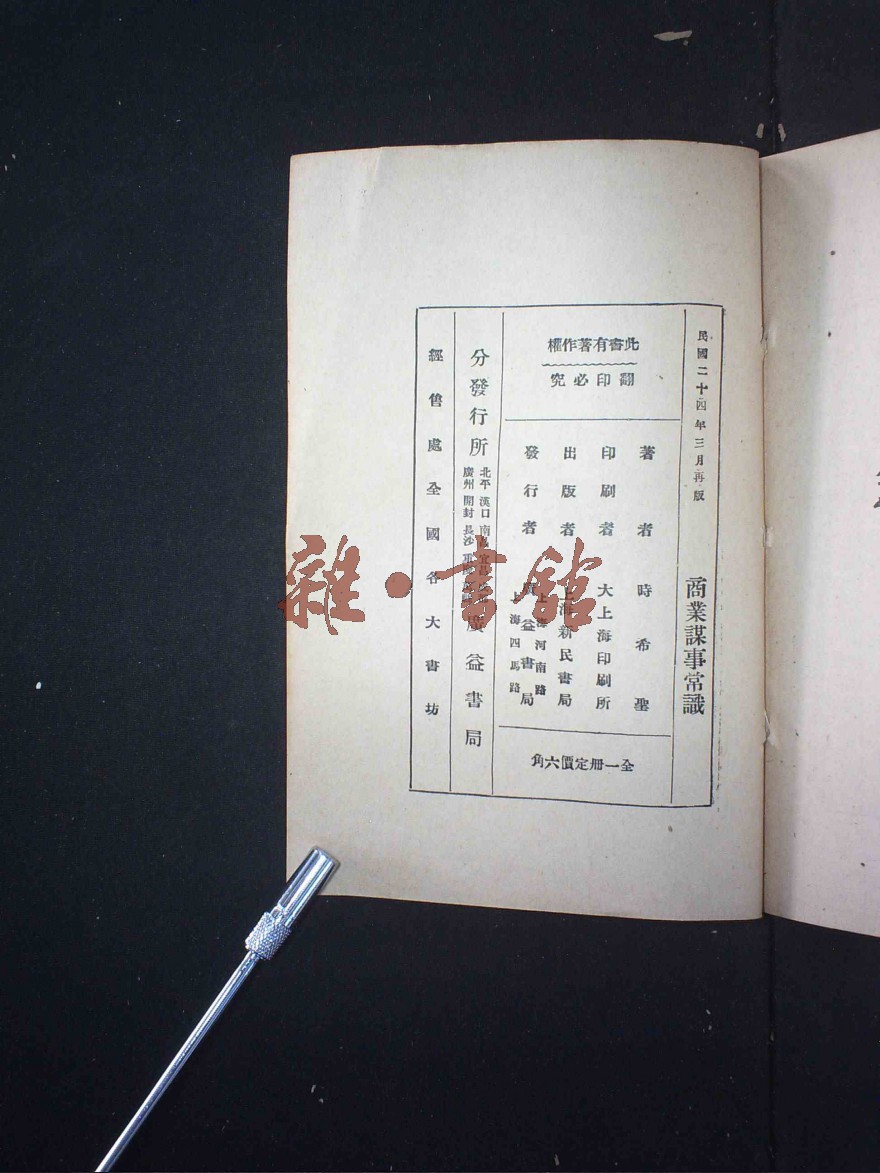 民國二十四年三月再版
商業謀事常識
此書有著作權
翻印必究
著者 時希聖
印刷者 大上海印刷所
出版者 上海新民書局
上海河南路
發行者 廣益書局
上海四馬路
全一册定價六角
分發行所
北平 漢口 南昌 宜昌
廣州 開封 長沙
廣益書局
經售處全國各大書坊
雜·書館